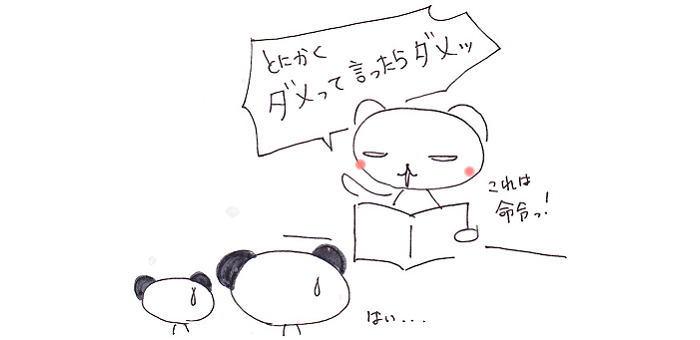 とにかく
ダメって言ったらダメッ
これは
命令っ!
はい...